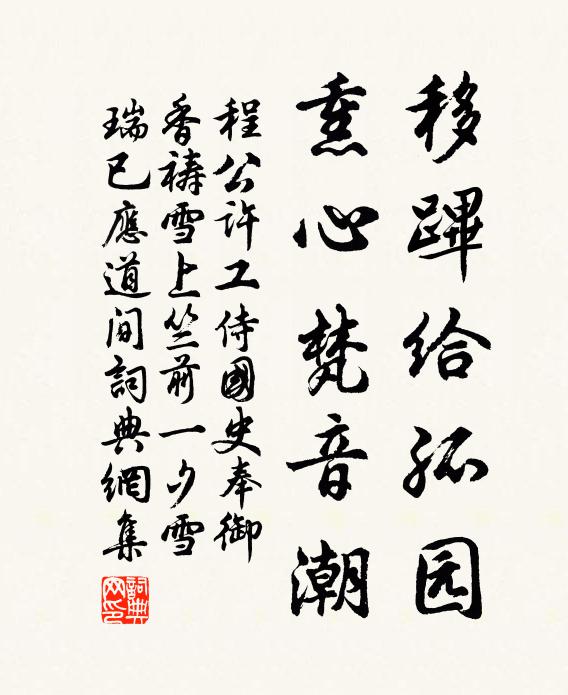 移蹕给孤园
熏心梵音潮
程公许工侍國史奉御
香禱雪上竺前一夕雪
瑞已應道间詞典網集
詞典網印